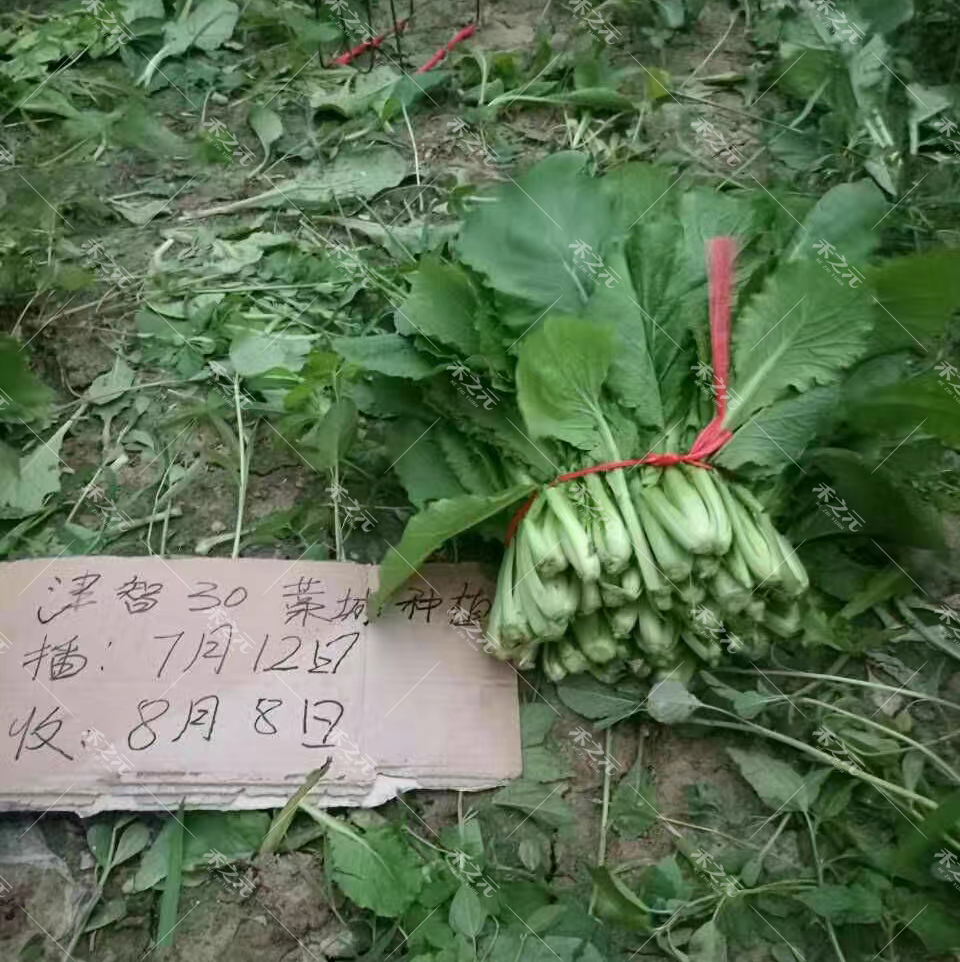 津智30 菜城 种植
播:7月12日
收:8月8日
禾之元